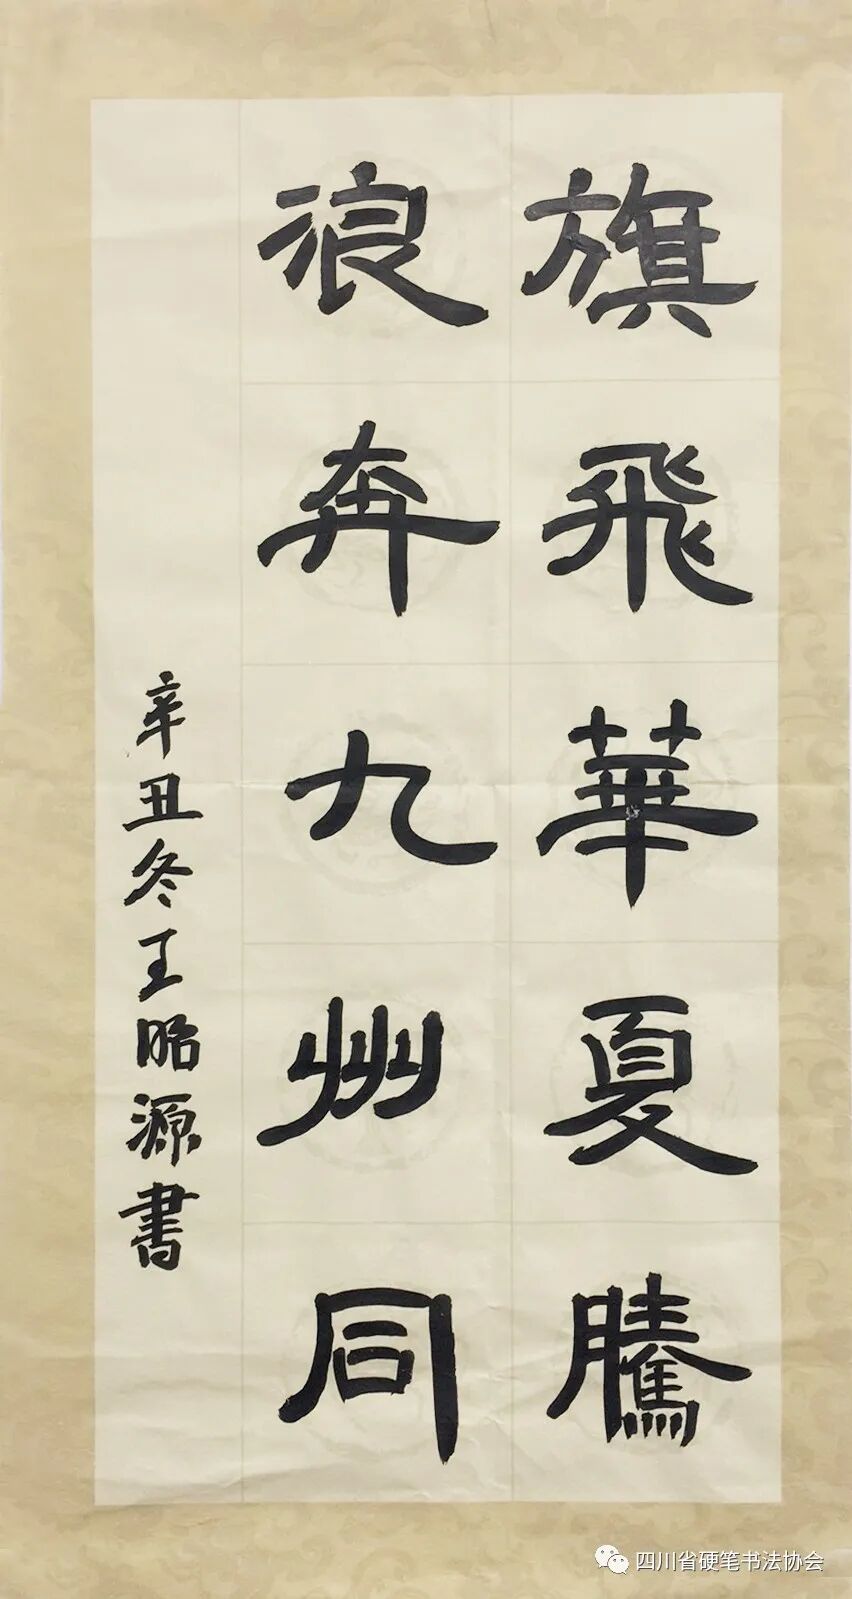 旗飛華夏騰
浪奔九州同
辛丑冬王昭源書
四川省硬笔书法协会